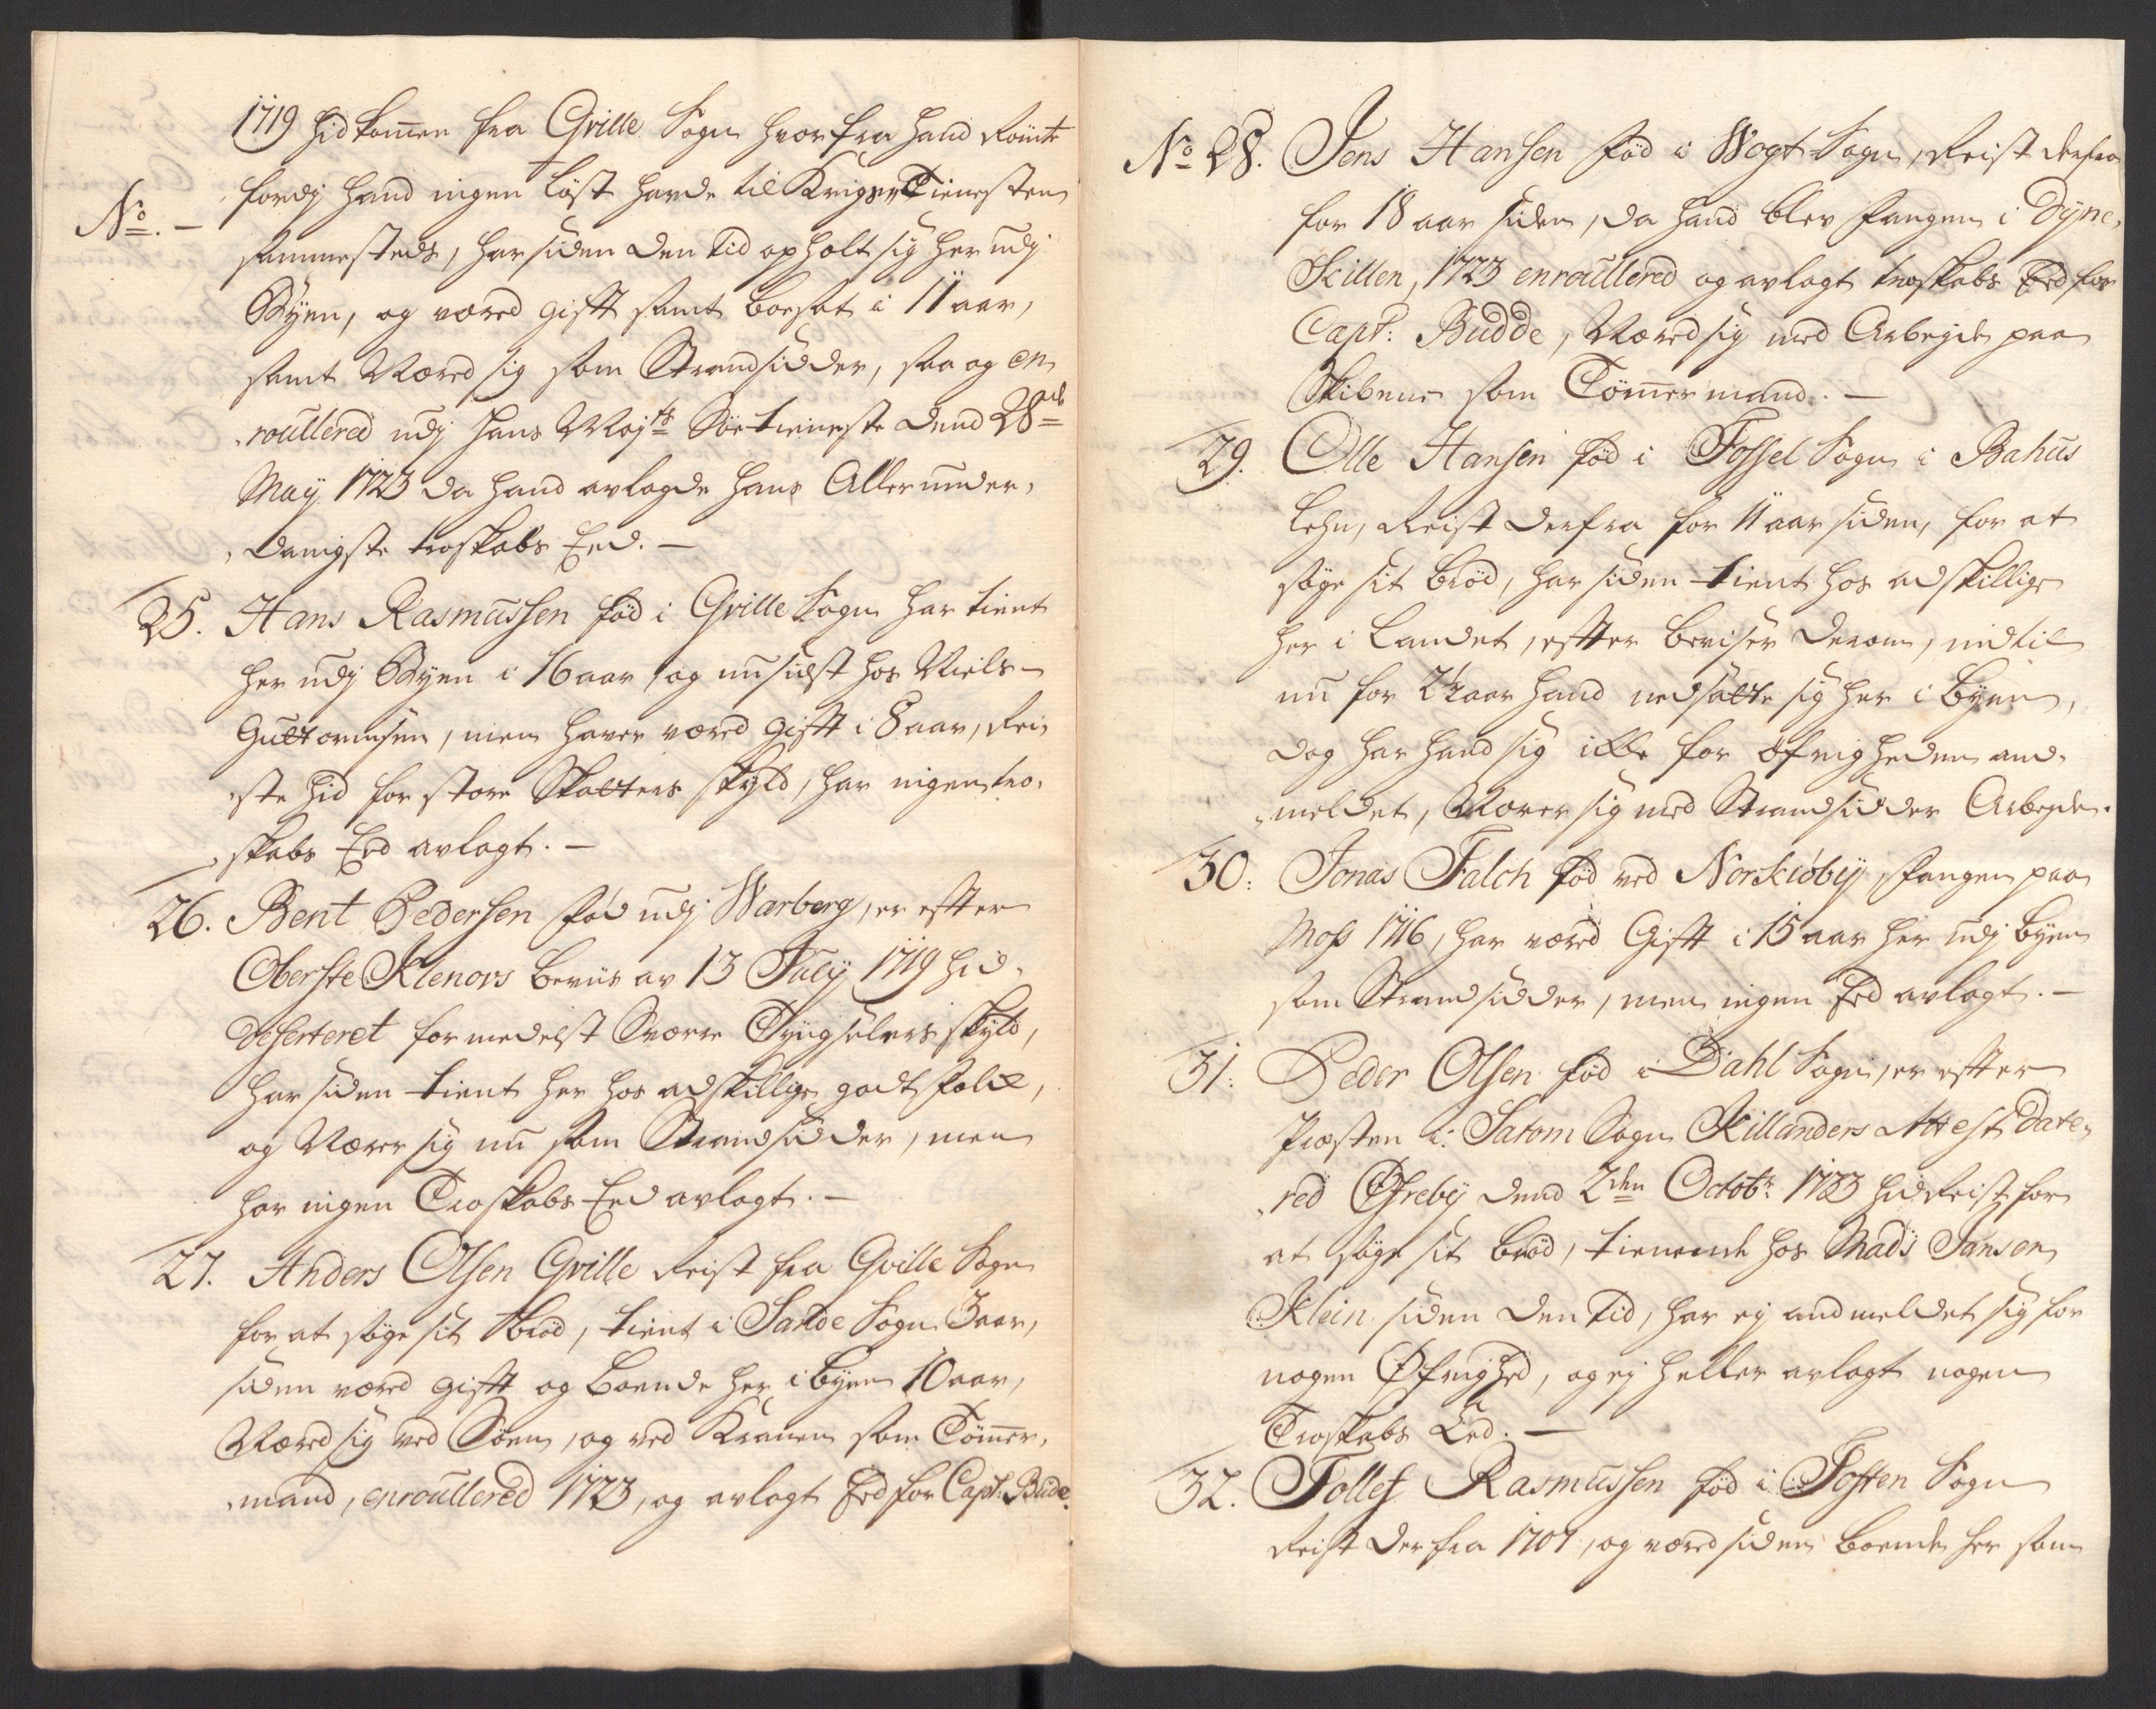 1719 hidkommen fra Qville Sogn hvorfra hand Rømte
fordj hand ingen løst hafde til Krigs Tienesten
No. –
sammesteds, har siden den tid opholt sig her udj
Byen, og været gifft samt boesat i 11 aar,
samt Næred sig som Strandsidder, saa og en
roullered udj Hans Mayts Søe tieneste dend 28de
May 1723 da hand aflagde hans Allerunder,
danigste troskabs Eed. –
25. Hans Rasmussen fød i Qville Sogn har tient
her udj Byen i 16 aar og nu sidst hos Niels
Guttormsen, men hafver været gifft i 8 aar, Rei,
ste hid for store Skatters skyld, har ingen tro,
skabs Eed aflagt. –
26. Bent Pedersen fød udj Warberg, er efter
Oberste Klenovs beviis av 13 July 1719 hid
deserteret formedelst Svære Tyngslers skyld,
har siden tient her hos adskillige godt folck,
og Nærer sig nu som Strandsidder, men
har ingen Troskabs Eed aflagt. –
27. Anders Olsen Qville Reist fra Qville Sogn
for at søge sit brød, tient i Sande Sogn 3 aar,
siden været gifft og boende her i byen 10 aar,
Næred sig ved Søen, og ved Kranen som Tømmer,
mand, enroullered 1723, og aflagt Eed for Capt. Bude.
No 28. Jens Hansen fød i Wogt Sogn, Reist derfra
for 18 aar siden, da hand blev fangen i Dyne,
Killen, 1723 enroullered og aflagt troskabs Eed for
Capt: Budde, Næred sig med Arbeyde paa
Skibene som Tømmermand. –
29. Olle Hansen fød i Fossel Sogn i Bahus
Lehn, Reist derfra for 11 aar siden, for at
søge sit brød, har siden tient hos adskillige
her i Landet, effter beviser derom, indtil
nu for 2½ aar hand nedsatte sig her i Byen,
dog har hand sig icke for Øfrigheden an,
meldet, Nærer sig med Strandsidder Arbeyde.
30: Jonas Falch fød ved Norkiøbij, fangen paa
Moss 1716, har været Gifft i 15 aar her udj byen
som Strandsidder, men ingen Eed aflagt. –
31: Peder Olsen fød i Dahl Sogn, er effter
Præsten i Satom Sogn Killanders Attest Date,
red Ofreby dend 2den Octobr: 1723 hid Reist for
at søge sit brød, tienende hos Mads Jansen
Klein siden den tid, har ej andmeldet sig for
nogen Øfrighed, og ej heller aflagt nogen
Troskabs Eed. –
32. Tollef Rasmussen fød i Tossen Sogn
Reist derfra 1707, og været siden boende her som